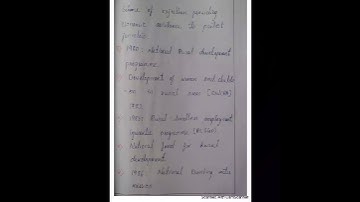 victims of rejection providing
economic assistance to patient
families.
1980 : National Rural development
programme.
Development of women and children
in rural areas (DWCRA)
1982
1983: Rural landless employment
guarantee programme (RLEGP)
National fund for rural
development.
1986 National
mission
Scanned with CamScanner